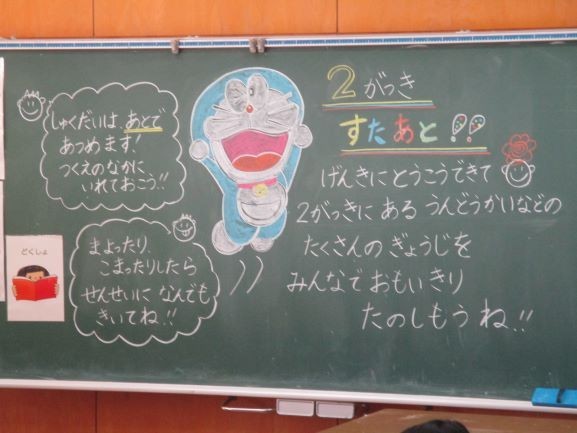 しゅくだいは あとで
あつめます!
つくえのなかに
いれておこう!!
どくしょ
まよったり
こまったりしたら
せんせいに なんでも
きいてね!!
2がっき
すたあと!!
げんきにとうこうできて
2がっきに ある うんどうかいなどの
たくさんのぎょうじを
みんなでおもいきり
たのしもうね!!